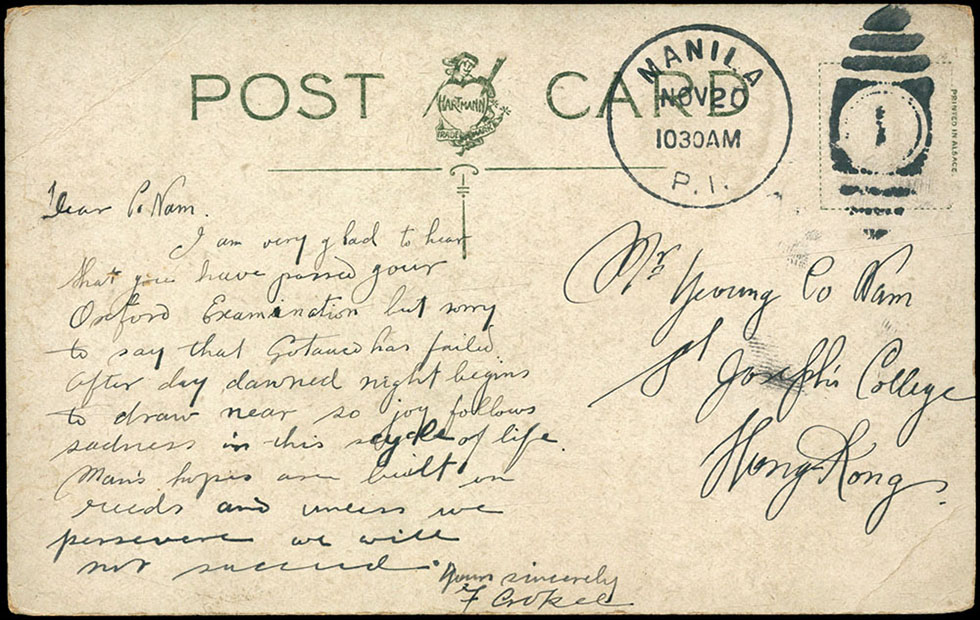 POST CARD
HARTMANN
TRADE MARK
MANILA
NOV 20
1030AM
P.I.
1
PRINTED IN ALSACE
Dear Co Nam.
I am very glad to hear
that you have passed your
Oxford Examination but sorry
to say that has failed.
After day dawned night begins
to draw near so joy follows
sadness in this cycle of life.
Man's hopes are built on
reeds and unless we
persevere we will
not succeed.
Yours sincerely
F
Mr Yeoung Co Nam
St Joseph's College
Hong-Kong.